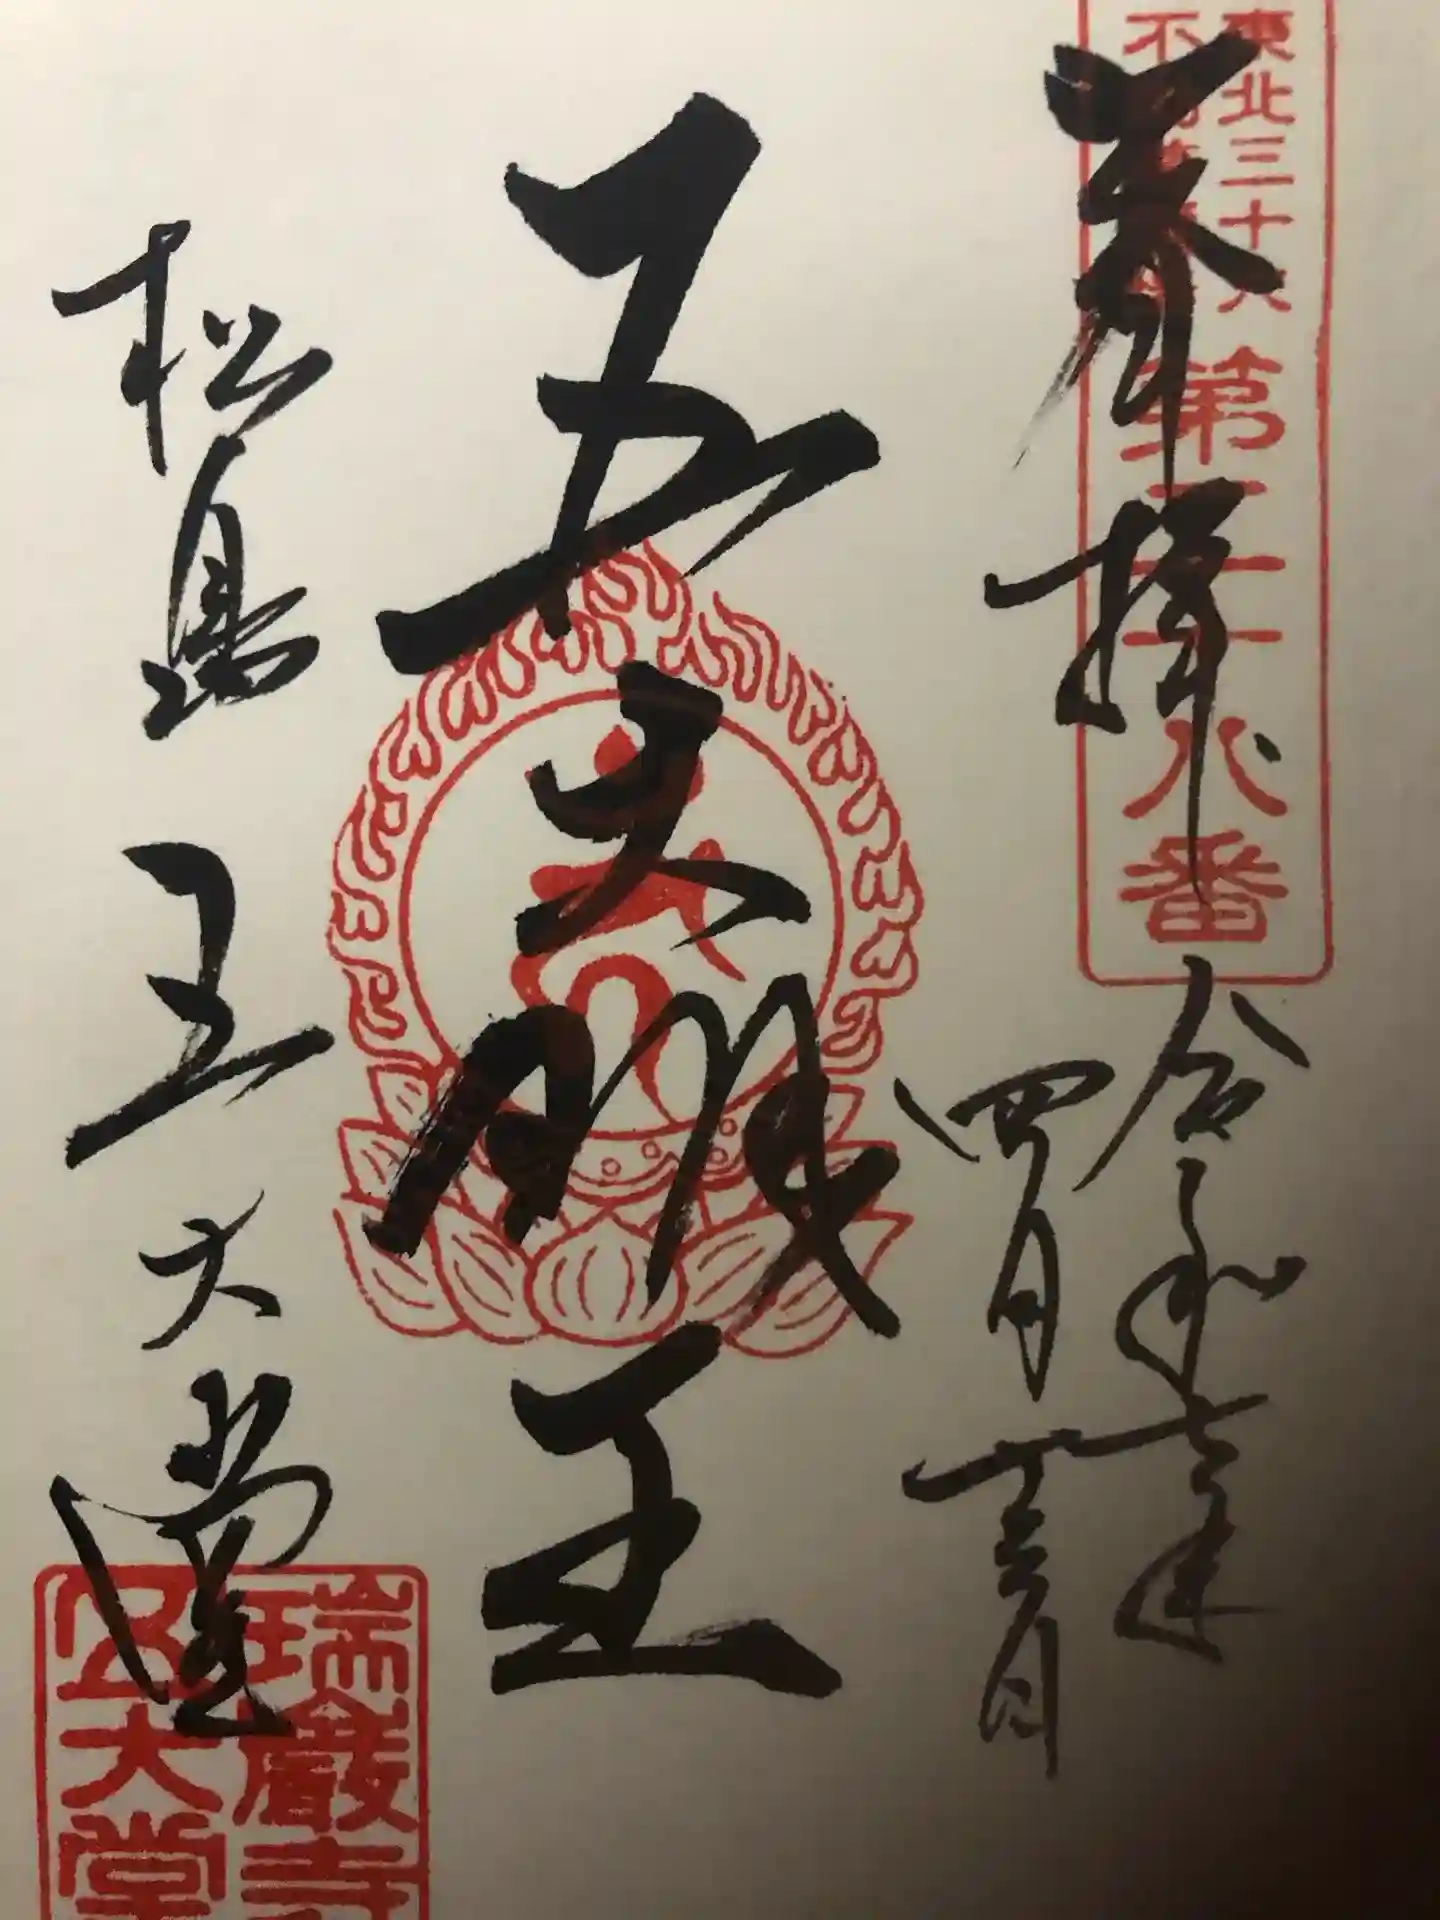 東北三十六
第二十八番
奉拝
令和七年
四月
五大明王
松島 五大堂
瑞巌寺
五大堂